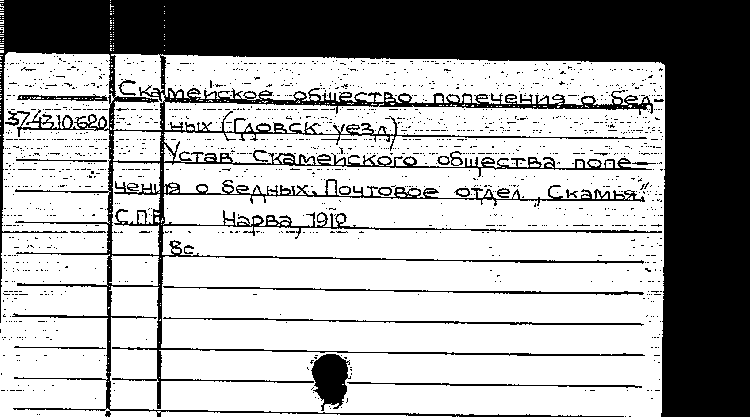 Скамейское общество попечения о бед-
37.43.10.620 ных (Гдовск. уезд)
Устав Скамейского общества попе-
чения о бедных. Почтовое отдел. „Скамья."
С.П.Б. Нарва, 1912.
8с.